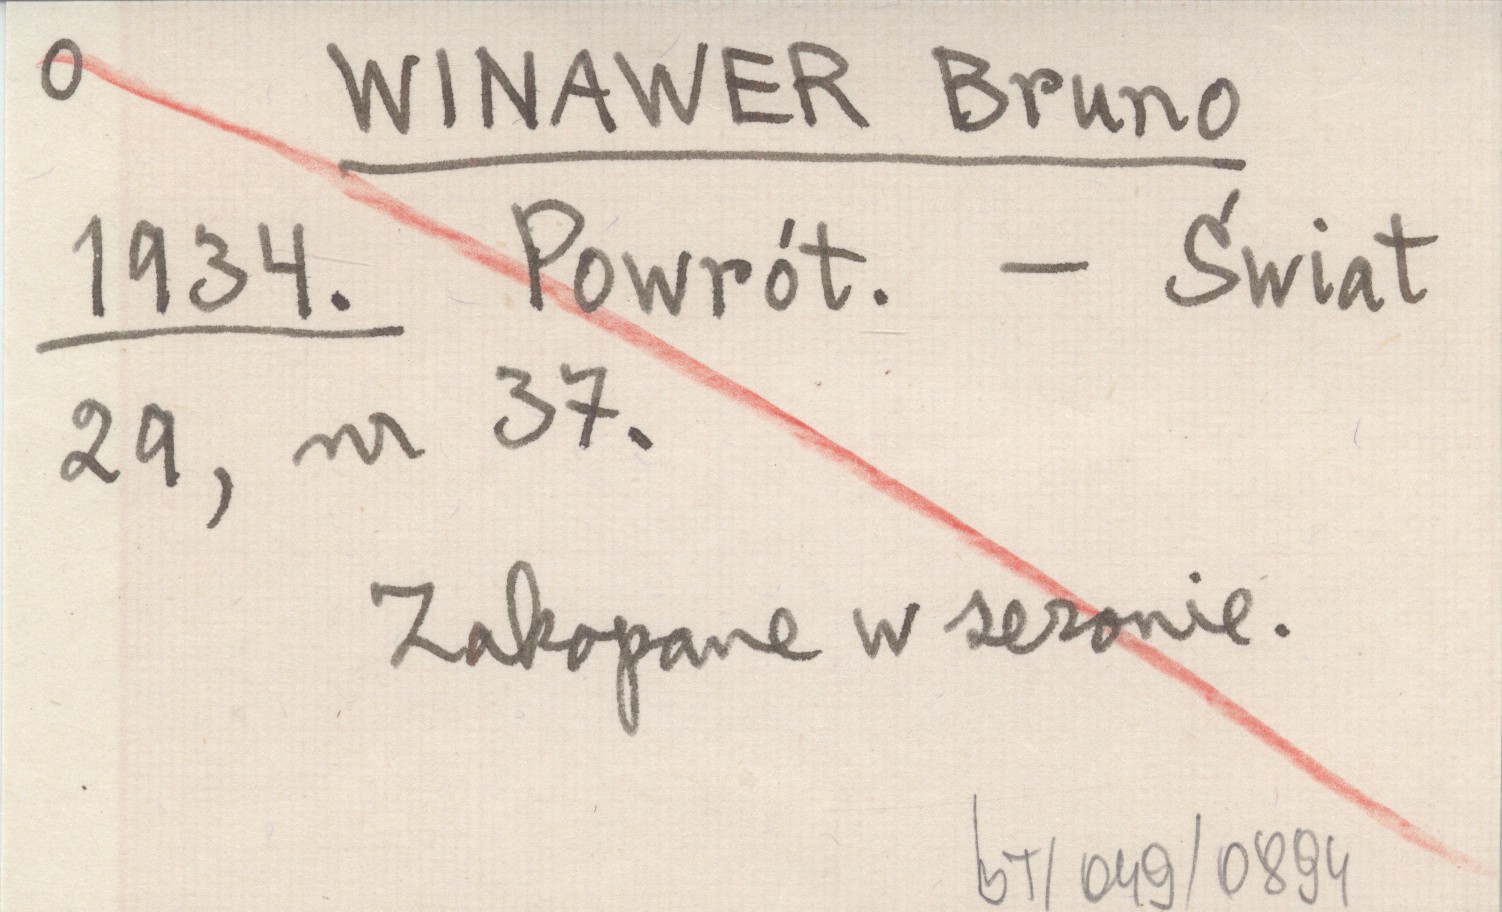 O WINAWER Bruno
1934. Powrót. – Świat
29, nr 37.
Zakopane w sezonie.
bT/049/0894